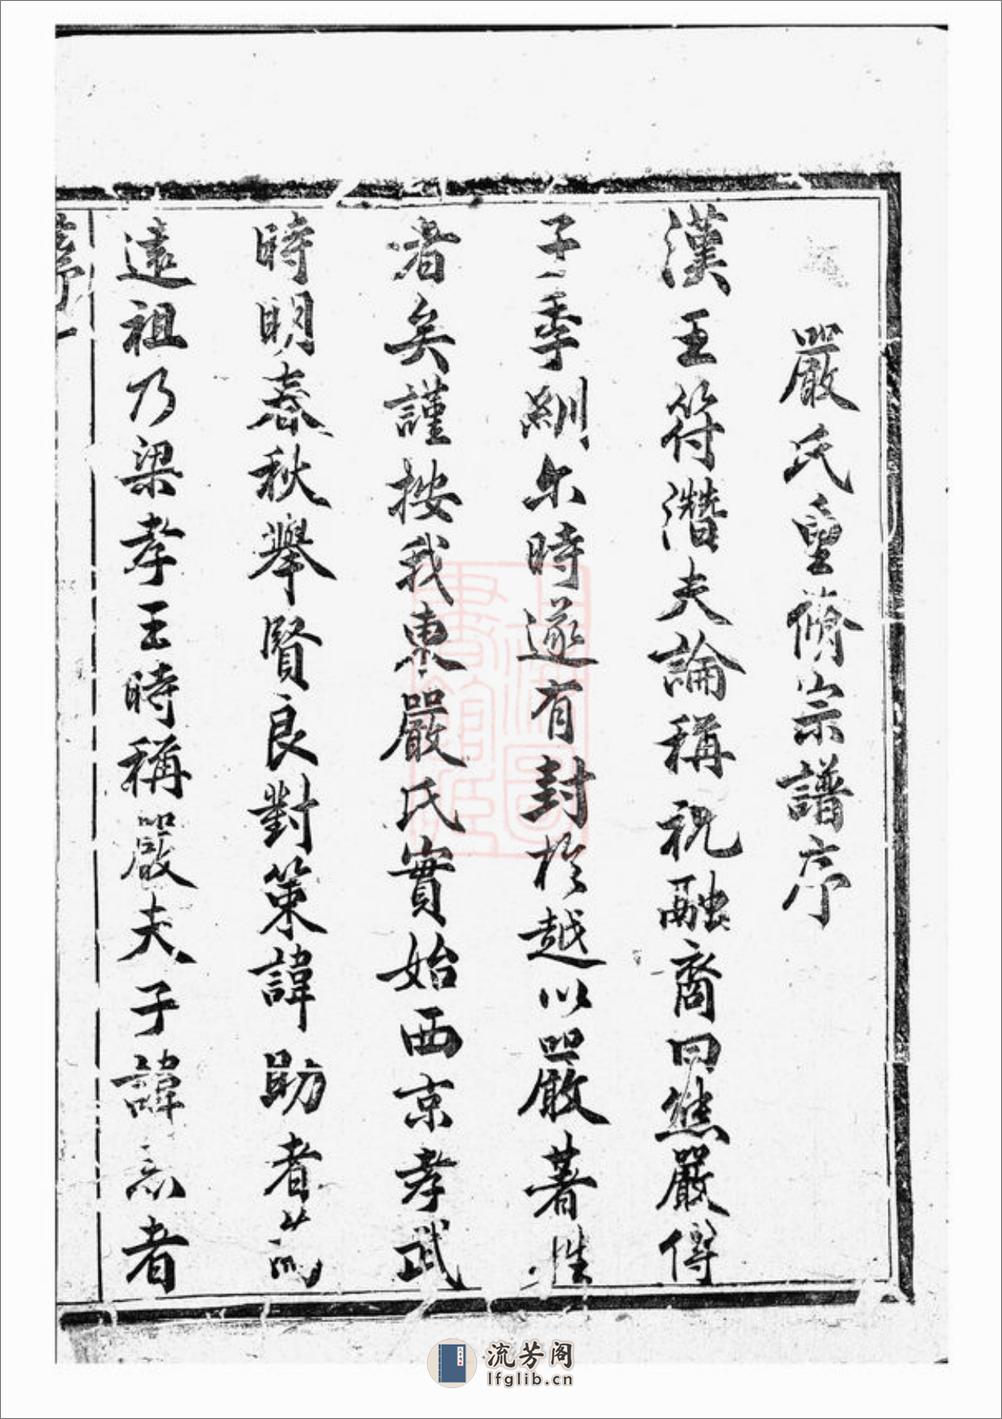 嚴氏重脩宗譜序
漢王符潛夫論稱祝融裔曰熊嚴得
子季紃尔時遂有封於越以嚴著姓
者矣謹按我東嚴氏實始西京孝武
時明春秋舉賢良對策諱助者
遠祖乃梁孝王時稱嚴夫子諱忌者
序一
流芳阁
lfglib.cn